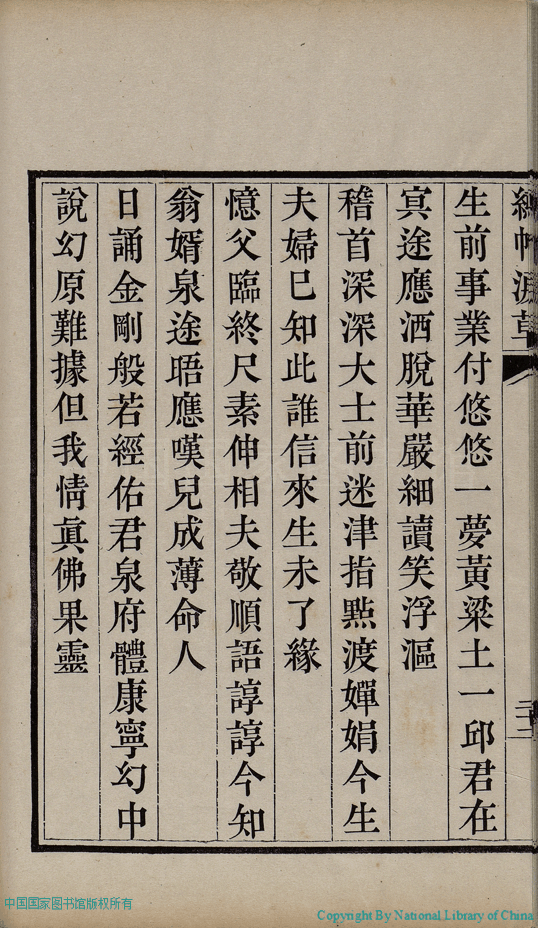 生前事業付悠悠一夢黃粱土一邱君在
㝠途應洒脫華嚴細讀笑浮漚
稽首深深大士前迷津指點渡嬋娟今生
夫婦巳知此誰信來生未了緣
憶父臨終尺素伸相夫敬順語諄諄今知
翁婿泉途晤應嘆兒成薄命人
日誦金剛般若經佑君泉府體康寧幻中
說幻原難據但我情眞佛果靈
中国国家图书馆版权所有
Copyright By National Library of China